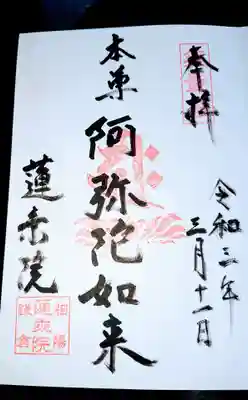 奉拝
令和三年
三月十一日
本尊
阿弥陀如来
蓮乗院
相陽
蓮乗院
鎌倉